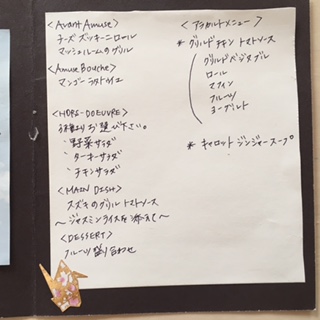 <Avant Amuse>
チーズ ズッキーニロール
マッシュルームのグリル
<Amuse Bouche>
マンゴーラタトゥイユ
<HORS-DOEUVRE>
よりお選び下さい。
・野菜サラダ
・ターキーサラダ
・チキンサラダ
<MAIN DISH>
スズキのグリル トマトソース
〜ジャスミンライスを添えて〜
<DESSERT>
フルーツ盛り合わせ
<アラカルトメニュー>
* グリルドチキン トマトソース
グリルドベジタブル
ロール
マフィン
フルーツ
ヨーグルト
* キャロット ジンジャースープ